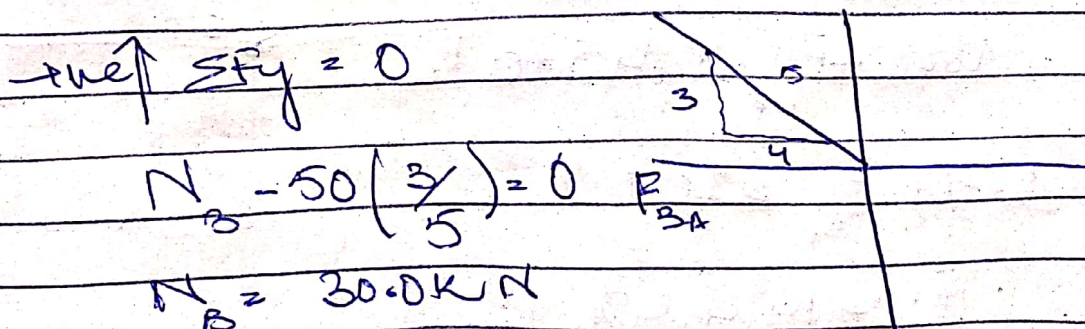 +ve↑ ΣFy = 0
5
3
4
N_B - 50(3/5) = 0
F_BA
N_B = 30.0KN